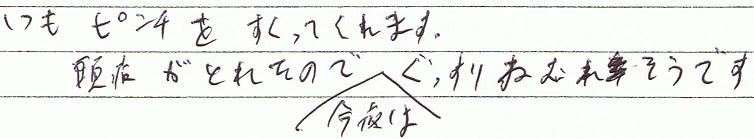 いつもピンチをすくってくれます。
頭痛がとれたので今夜はぐっすりねむれそうです